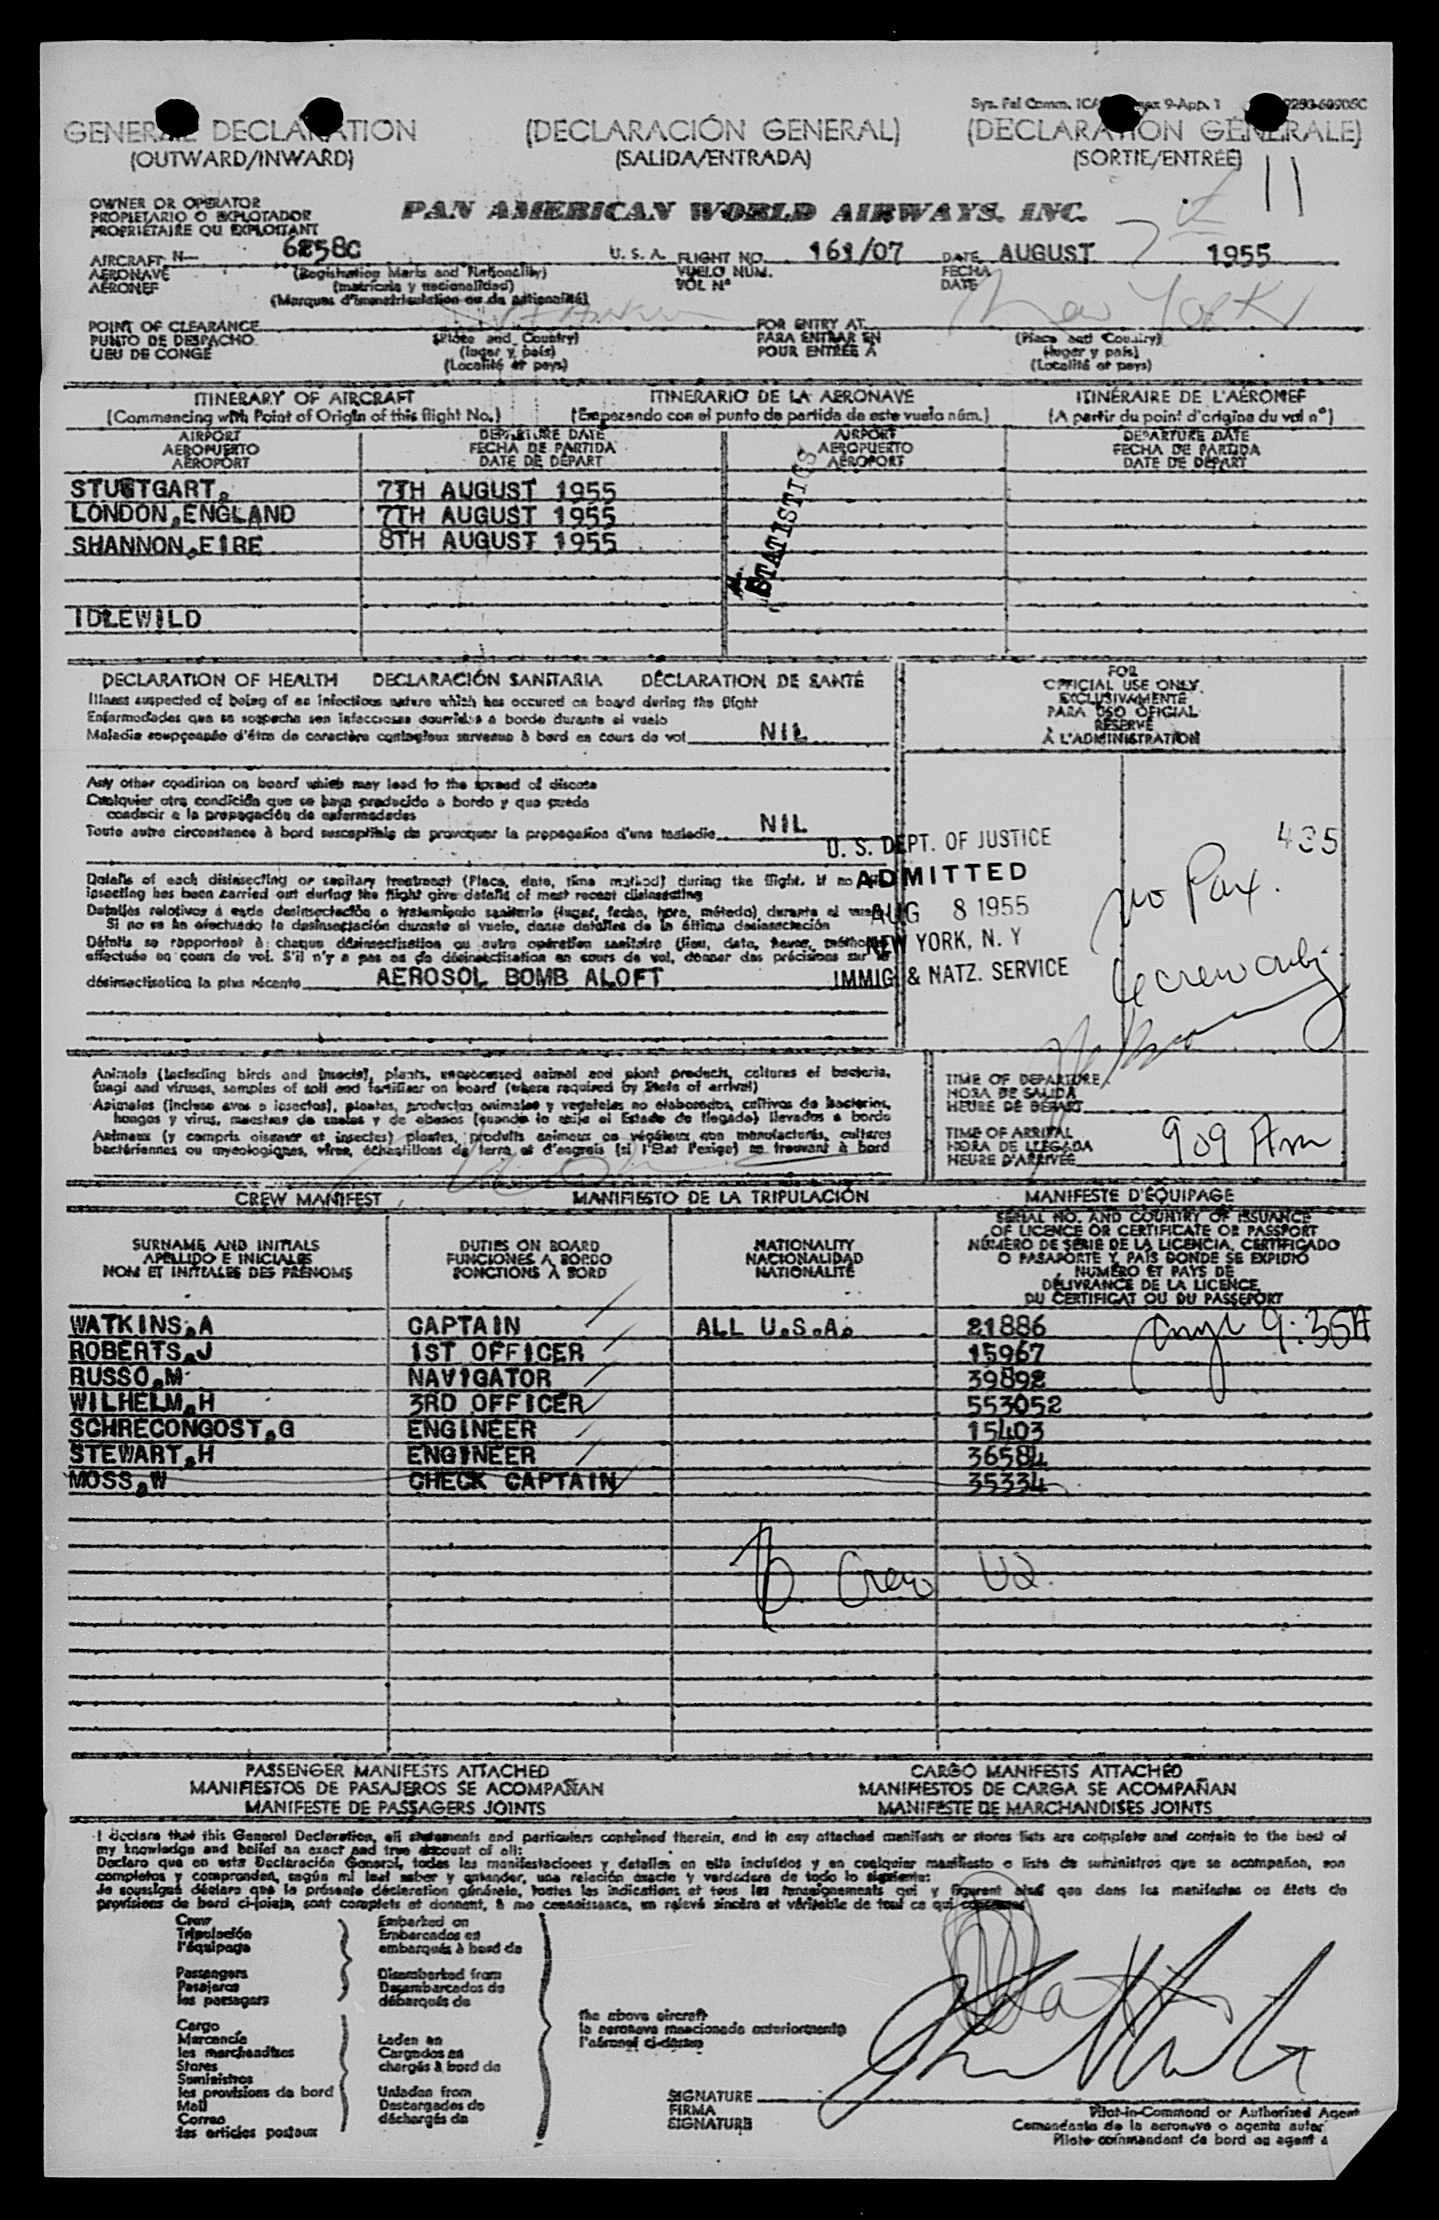 Sys. Fal Comm. ICA
GENERAL DECLARATION (DECLARACIÓN GENERAL) (DECLARATION GÉNÉRALE)
(OUTWARD/INWARD) (SALIDA/ENTRADA) (SORTIE/ENTRÉE) 11
OWNER OR OPERATOR
PROPIETARIO O EXPLOTADOR
PROPRIÉTAIRE OU EXPLOITANT
PAN AMERICAN WORLD AIRWAYS, INC.
AIRCRAFT N- 6258C U. S. A. FLIGHT NO. 161/07 DATE AUGUST 7 1955
AERONAVE (Registration Marks and Nationality) VUELO NÚM. FECHA
AÉRONEF (matrícula y nacionalidad) VOL N° DATE
(Marques d'immatriculation ou de nationalité)
POINT OF CLEARANCE FOR ENTRY AT New York
PUNTO DE DESPACHO (Place and Country) PARA ENTRAR EN (Place and Country)
LIEU DE CONGÉ (lugar y país) POUR ENTRÉE À (lugar y país)
(Localité et pays) (Localité et pays)
ITINERARY OF AIRCRAFT ITINERARIO DE LA AERONAVE ITINÉRAIRE DE L'AÉRONEF
(Commencing with Point of Origin of this flight No.) (Empezando con el punto de partida de este vuelo núm.) (A partir du point d'origine du vol n°)
AIRPORT DEPARTURE DATE AIRPORT DEPARTURE DATE
AEROPUERTO FECHA DE PARTIDA AEROPUERTO FECHA DE PARTIDA
AÉROPORT DATE DE DÉPART AÉROPORT DATE DE DÉPART
STUTTGART, 7TH AUGUST 1955
LONDON,ENGLAND 7TH AUGUST 1955
SHANNON,EIRE 8TH AUGUST 1955
STATISTICS
IDLEWILD
DECLARATION OF HEALTH DECLARACIÓN SANITARIA DÉCLARATION DE SANTÉ
Illness suspected of being of an infectious nature which has occured on board during the flight
Enfermedades que se sospecha sen infecciosas ocurridas a bordo durante el vuelo
Maladie soupçonnée d'être de caractère contagieux survenue à bord en cours de vol NIL
FOR
OFFICIAL USE ONLY
EXCLUSIVAMENTE
PARA USO OFICIAL
RÉSERVÉ
À L'ADMINISTRATION
Any other condition on board which may lead to the spread of disease
Cualquier otra condición que se haya producido a bordo y que pueda
conducir a la propagación de enfermedades
Toute autre circonstance à bord susceptible de provoquer la propagation d'une maladie NIL
U. S. DEPT. OF JUSTICE
ADMITTED
AUG 8 1955
NEW YORK, N. Y
IMMIG & NATZ. SERVICE
435
No Pax.
Crew only
Details of each disinsecting or sanitary treatment (Place, date, time method) during the flight. If no
insecting has been carried out during the flight give details of most recent disinsecting
Detalles relativos a cada desinsectación o tratamiento sanitario (lugar, fecha, hora, método) durante el vuelo
Si no se ha efectuado la desinsectación durante el vuelo, dense detalles de la última desinsectación
Détails se rapportant à chaque désinsectisation ou autre opération sanitaire (lieu, date, heure, méthode
effectuée en cours de vol. S'il n'y a pas eu de désinsectisation en cours de vol, donner des précisions sur la
désinsectisation la plus récente AEROSOL BOMB ALOFT
Animals (including birds and insects), plants, unprocessed animal and plant products, cultures of bacteria,
fungi and viruses, samples of soil and fertilizer on board (where required by State of arrival)
Animales (incluso aves o insectos), plantas, productos animales y vegetales no elaborados, cultivos de bacterias,
hongos y virus, muestras de suelos y de abonos (cuando lo exija el Estado de llegada) llevados a bordo
Animaux (y compris oiseaux et insectes) plantes, produits animaux ou végétaux non manufacturés, cultures
bactériennes ou mycologiques, virus, échantillons de terre et d'engrais (si l'État l'exige) se trouvant à bord
TIME OF DEPARTURE
HORA DE SALIDA
HEURE DE DÉPART
TIME OF ARRIVAL
HORA DE LLEGADA
HEURE D'ARRIVÉE 909 Am
CREW MANIFEST MANIFIESTO DE LA TRIPULACIÓN MANIFESTE D'ÉQUIPAGE
SURNAME AND INITIALS
APELLIDO E INICIALES
NOM ET INITIALES DES PRÉNOMS
DUTIES ON BOARD
FUNCIONES A BORDO
FONCTIONS À BORD
NATIONALITY
NACIONALIDAD
NATIONALITÉ
SERIAL NO. AND COUNTRY OF ISSUANCE
OF LICENCE OR CERTIFICATE OR PASSPORT
NÚMERO DE SERIE DE LA LICENCIA, CERTIFICADO
O PASAPORTE Y PAÍS DONDE SE EXPIDIÓ
NUMÉRO ET PAYS DE
DÉLIVRANCE DE LA LICENCE,
DU CERTIFICAT OU DU PASSEPORT
WATKINS,A CAPTAIN ALL U.S.A. 21886 9:35A
ROBERTS,J 1ST OFFICER 15967
RUSSO,M NAVIGATOR 39892
WILHELM,H 3RD OFFICER 553052
SCHRECONGOST,G ENGINEER 15403
STEWART,H ENGINEER 36584
MOSS,W CHECK CAPTAIN 35334
Crew US
PASSENGER MANIFESTS ATTACHED CARGO MANIFESTS ATTACHED
MANIFIESTOS DE PASAJEROS SE ACOMPAÑAN MANIFIESTOS DE CARGA SE ACOMPAÑAN
MANIFESTE DE PASSAGERS JOINTS MANIFESTE DE MARCHANDISES JOINTS
I declare that this General Declaration, all statements and particulars contained therein, and in any attached manifests or stores lists are complete and contain to the best of
my knowledge and belief an exact and true account of all:
Declaro que en esta Declaración General, todas las manifestaciones y detalles en ella incluídos y en cualquier manifiesto o lista de suministros que se acompañan, son
completos y comprenden, según mi leal saber y entender, una relación exacta y verdadera de todo lo siguiente:
Je soussigné déclare que la présente déclaration générale, toutes les indications et tous les renseignements qui y figurent ainsi que dans les manifestes ou états de
provisions de bord ci-joints, sont complets et donnent, à ma connaissance, un relevé sincère et véritable de tout ce qui
Crew Embarked on
Tripulación Embarcados en
l'équipage embarqués à bord de
Passengers Disembarked from
Pasajeros Desembarcados de
les passagers débarqués de
the above aircraft
la aeronave mencionada anteriormente
l'aéronef ci-dessus
Cargo
Mercancía Laden on
les marchandises Cargados en
Stores chargés à bord de
Suministros
les provisions de bord Unladen from
Mail Descargados de
Correo déchargés de
les articles postaux
SIGNATURE
FIRMA
SIGNATURE
Pilot-in-Command or Authorized Agent
Comandante de la aeronave o agente autor
Pilote commandant de bord ou agent a